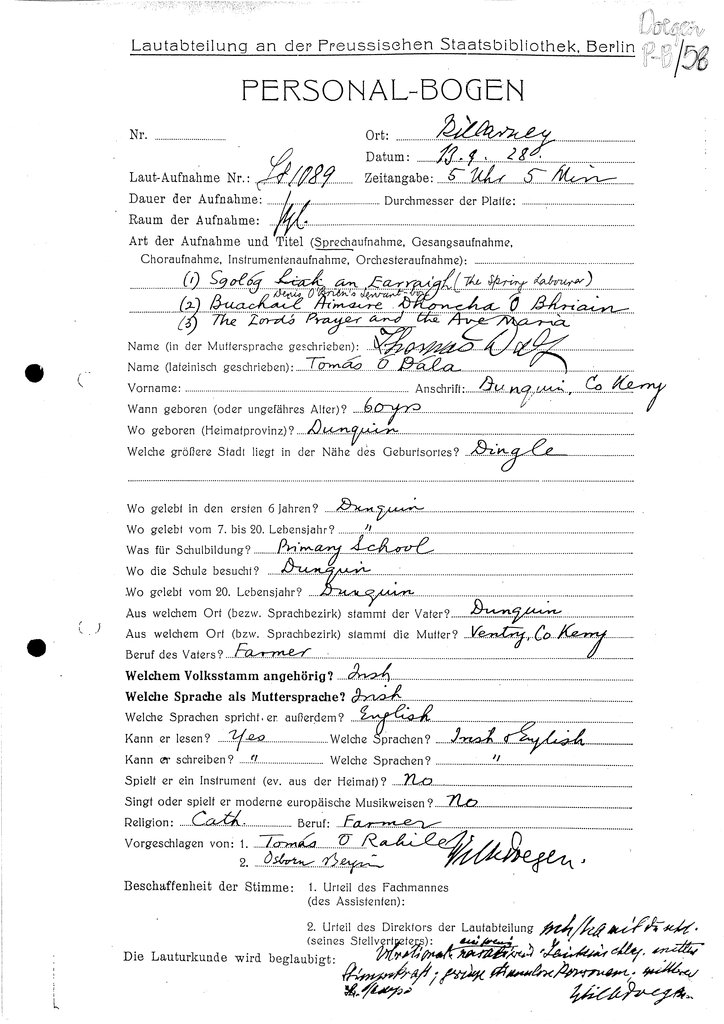 Doegen
Lautabteilung an der Preussischen Staatsbibliothek, Berlin
P-B/58
PERSONAL-BOGEN
Nr. Ort: Killarney
Datum: 13.9.28.
Laut-Aufnahme Nr.: 1089 Zeitangabe: 5 Uhr 5 Min
Dauer der Aufnahme: Durchmesser der Platte:
Raum der Aufnahme:
Art der Aufnahme und Titel (Sprechaufnahme, Gesangsaufnahme,
Choraufnahme, Instrumentenaufnahme, Orchesteraufnahme):
(1) Sgológ Liath an Earraigh (The Spring Labourer)
Denis O'Brien's Servant boy
(2) Buachaill Aimsire Dhoncha O Bhriain
(3) The Lord's Prayer and the Ave Maria
Name (in der Muttersprache geschrieben): Thomas Daly
Name (lateinisch geschrieben): Tomás O Dála
Vorname: Anschrift: Dunquin, Co Kerry
Wann geboren (oder ungefähres Alter)? 60 yrs
Wo geboren (Heimatprovinz)? Dunquin
Welche größere Stadt liegt in der Nähe des Geburtsortes? Dingle
Wo gelebt in den ersten 6 Jahren? Dunquin
Wo gelebt vom 7. bis 20. Lebensjahr? "
Was für Schulbildung? Primary School
Wo die Schule besucht? Dunquin
Wo gelebt vom 20. Lebensjahr? Dunquin
Aus welchem Ort (bezw. Sprachbezirk) stammt der Vater? Dunquin
Aus welchem Ort (bzw. Sprachbezirk) stammt die Mutter? Ventry, Co Kerry
Beruf des Vaters? Farmer
Welchem Volksstamm angehörig? Irish
Welche Sprache als Muttersprache? Irish
Welche Sprachen spricht er außerdem? English
Kann er lesen? Yes Welche Sprachen? Irish & English
Kann er schreiben? " Welche Sprachen? "
Spielt er ein Instrument (ev. aus der Heimat)? No
Singt oder spielt er moderne europäische Musikweisen? No
Religion: Cath. Beruf: Farmer
Vorgeschlagen von: 1. Tomás O Rahille Wilh. Doegen.
2. Osborn Bergin
Beschaffenheit der Stimme: 1. Urteil des Fachmannes
(des Assistenten):
2. Urteil des Direktors der Lautabteilung
(seines Stellvertreters):
Die Lauturkunde wird beglaubigt:
Wilh. Doegen.